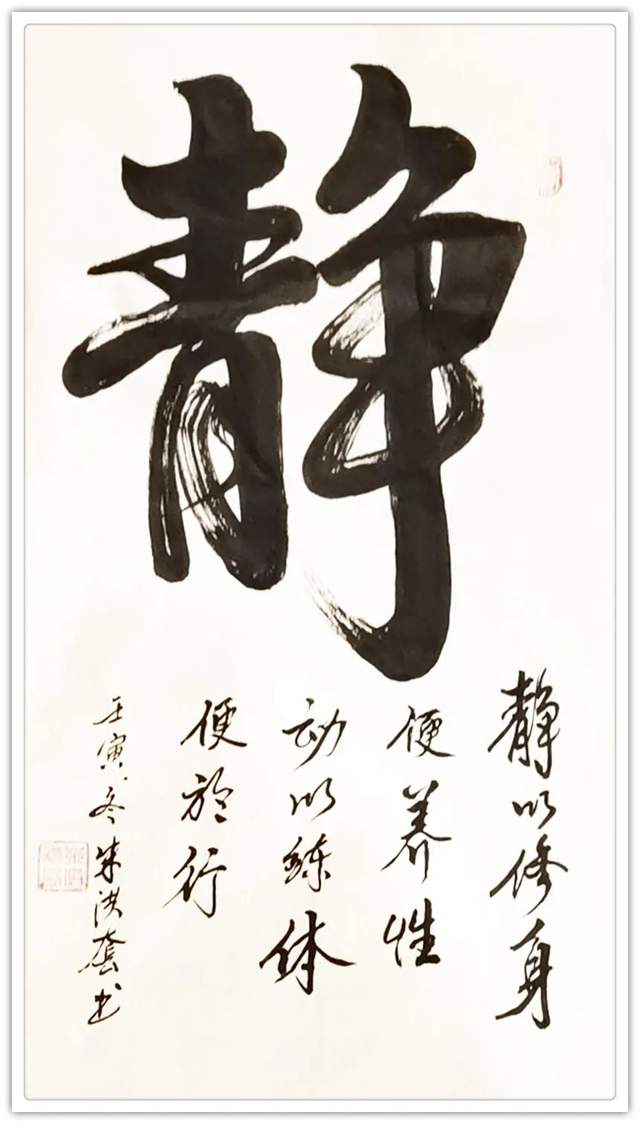 静
静以修身
便养性
动以练体
便於行
壬寅冬朱洪套书